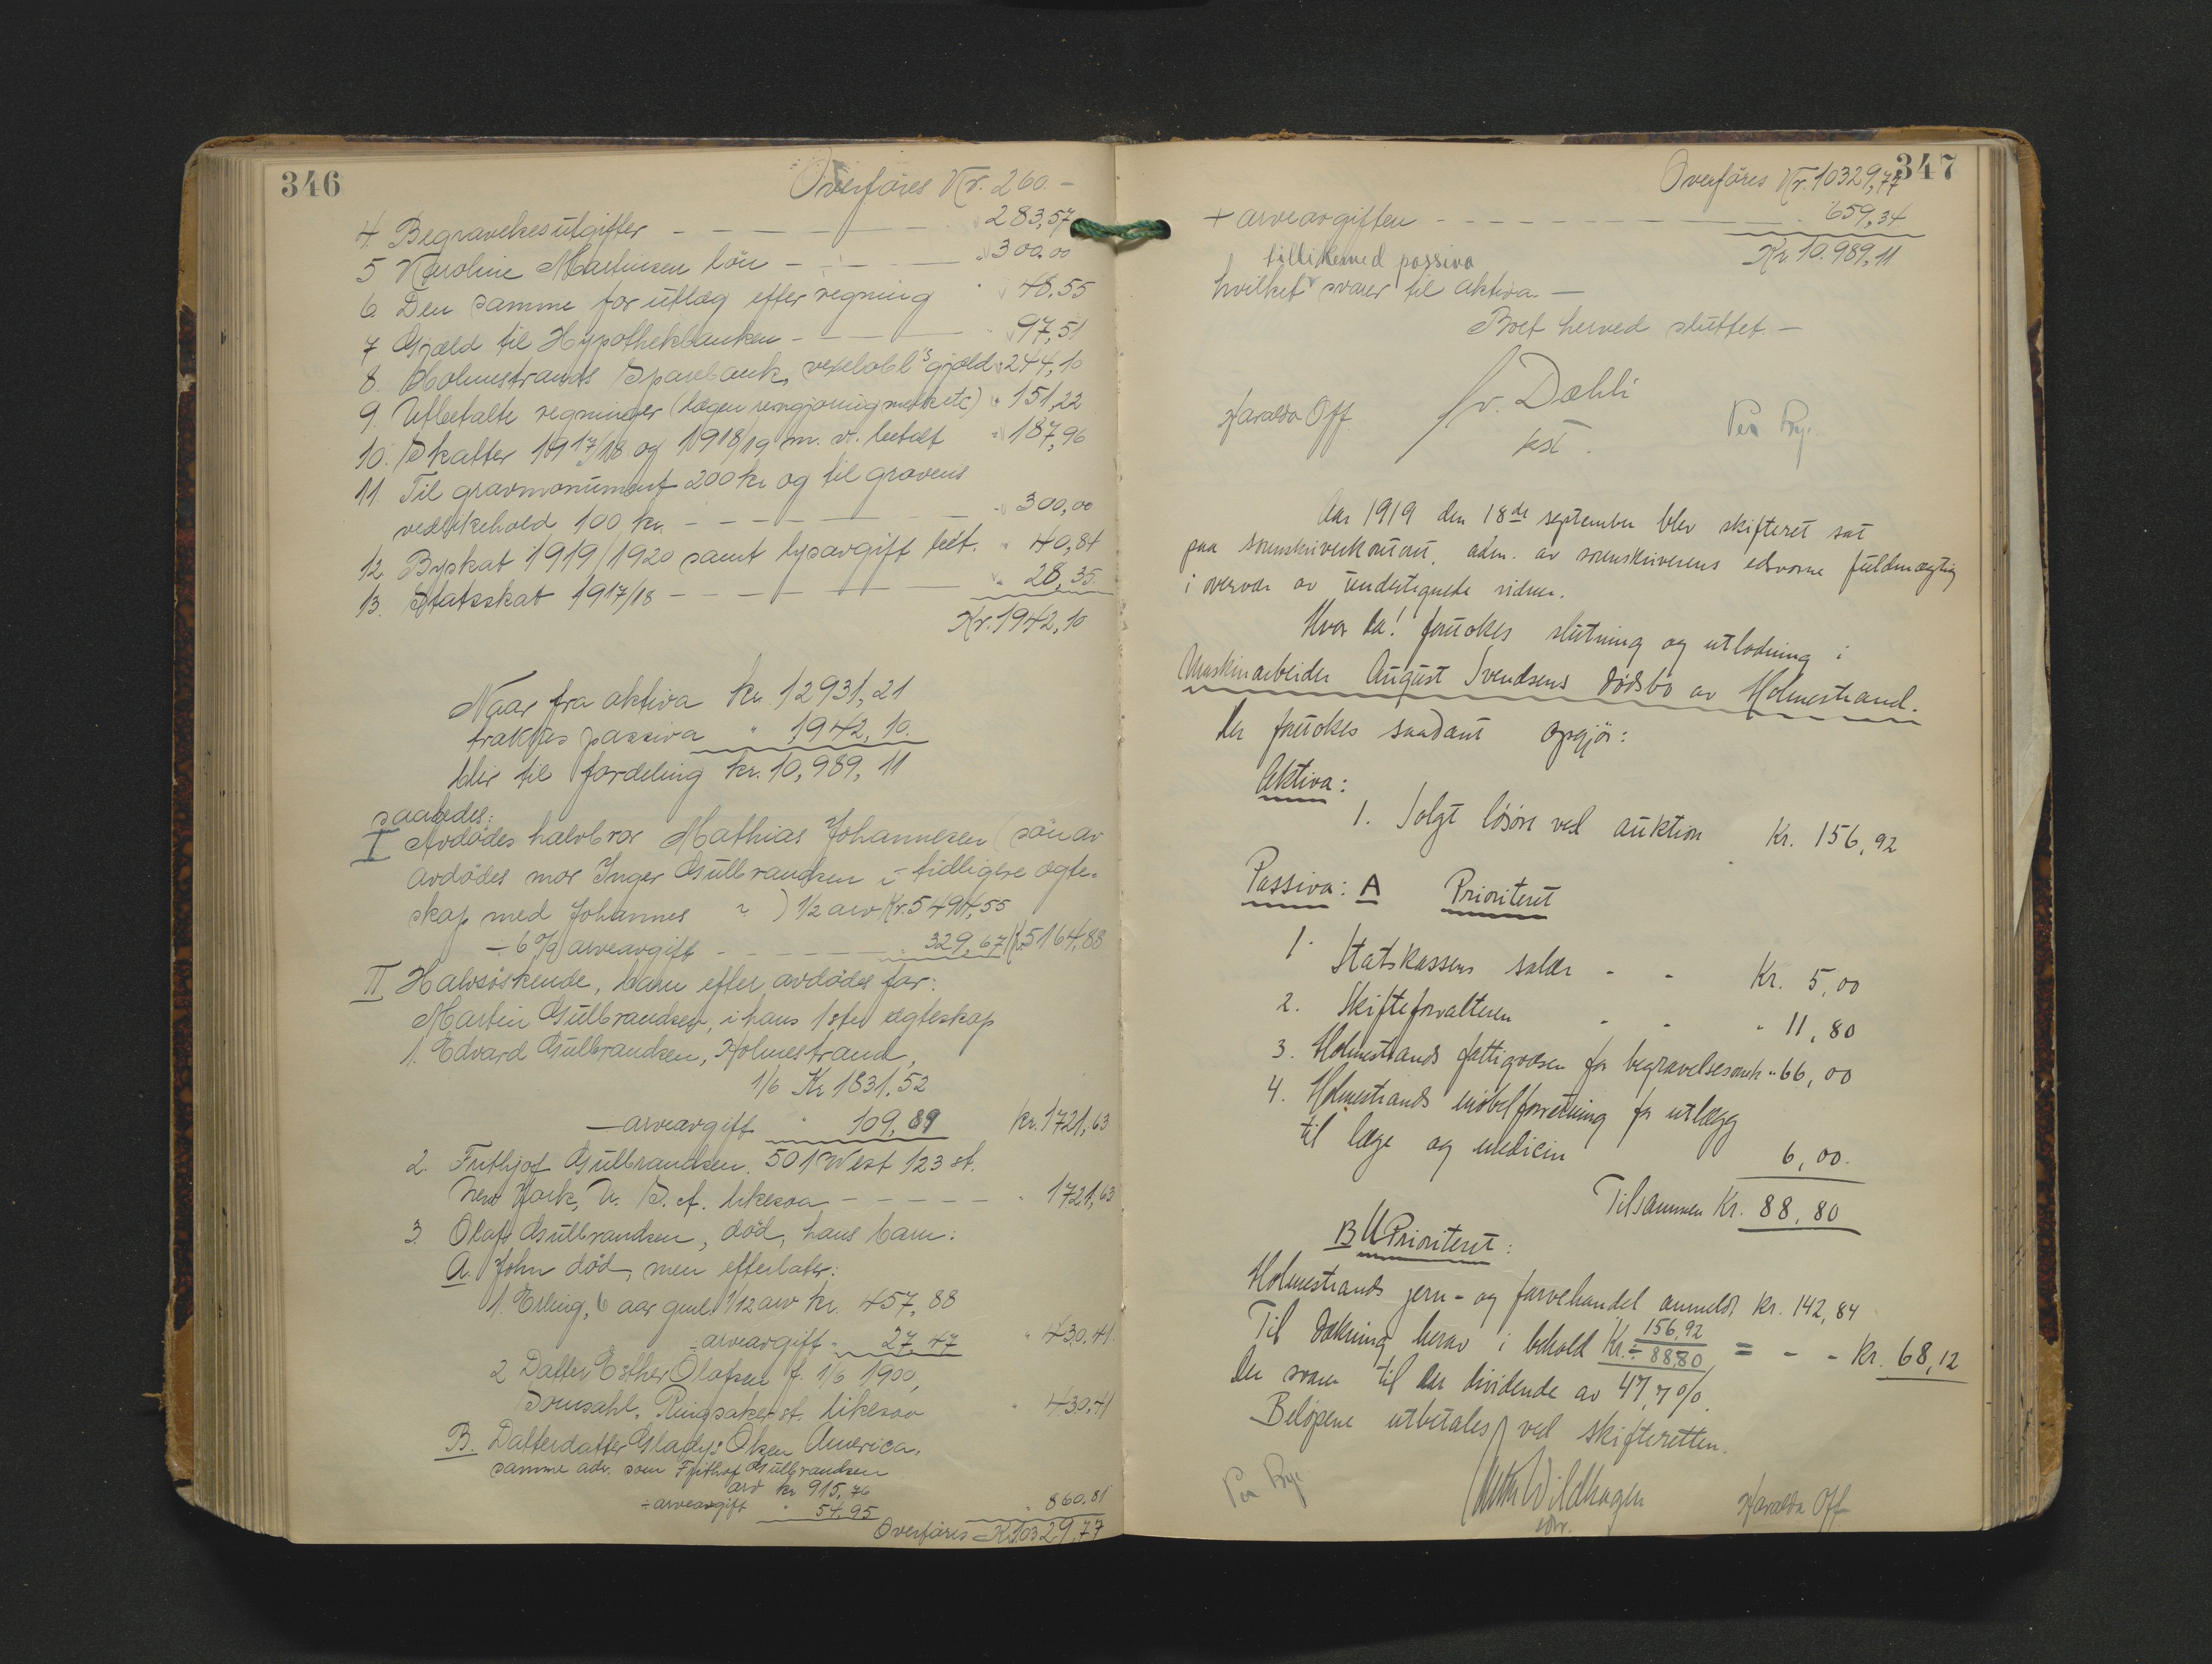 346
Overføres Kr. 260.-
4. Begravelsesutgifter - - - - - 283,57
5 Karoline Martinsen lön - - - - " 300.00
6. Den samme for utlæg efter regning " 48.55
7 Gjæld til Hypothekbanken - - - " 97,51
8. Holmestrands Sparebank, vexelobl gjæld " 244,10
9. Utbetalte regninger (lægen rengjöring etc) " 151,22
10. Skatter 1917/18 og 1918/19 m. v. betalt " 187,96
11. Til gravmonument 200 kr og til gravens
vedlikehold 100 kr. - - - - - " 300,00
12. Byskat 1919/1920 samt lysavgift bet. " 40,84
13. Statsskat 1917/18 - - - - - " 28,35.
Kr. 1942,10
Naar fra aktiva kr. 12931,21
traktes passiva " 1942,10.
blir til fordeling kr. 10,989,11
saaledes:
I Avdödes halvbror Mathias Johannesen (sön av
avdödes mor Inger Gulbrandsen i tidligere ægte-
skap med Johannes ? ) 1/2 arv Kr. 5494,55
÷ 6% arveavgift - - - - " 329,67 Kr. 5164,88
II Halvsöskende, barn efter avdödes far:
Martin Gulbrandsen, i hans 1ste ægteskap
1. Edvard Gulbrandsen, Holmestrand,
1/6 Kr 1831.52
— arveavgift " 109,89 kr. 1721,63
2. Frithjof Gulbrandsen. 501 West 123 st.
New York, U. S. A. likesaa - - - - - " 1721,63
3. Olaf Gulbrandsen, död, hans barn:
A. John död, men efterlater:
1. Erling, 6 aar gml. 1/12 arv kr. 457,88
÷ arveavgift " 27,47 " 430.41.
2 Datter Esther Olafsen f. 1/6 1900,
Ringsaker st. likesaa " 430,41
B. Datterdatter Gladys Olsen America,
samme adr. som Frithof Gulbrandsen
arv kr 915,76
÷ arveavgift " 54,95 " 860.81
Overføres Kr. 10329,77
347
Overföres Kr. 10329,77
+ arveavgiften - - - - - " 659,34
Kr 10.989,11
tillikemed passiva
hvilket svarer til aktiva —
Boet herved sluttet —
Haralda Off Dæhli Per Bye
kst.
Aar 1919 den 18de september blev skifteret sat
paa sorenskriverkontoret, adm. av sorenskriverens edsvorne fuldmægtig
i overvær av undertegnede vidner.
Hvor da! foretokes slutning og utlodning i
Maskinarbeider August Svendsens dödsbo av Holmestrand.
Der foretokes saadant opgjör:
Aktiva:
1. Solgt lösöre ved auktion Kr. 156,92
Passiva: A Prioritert
1. Statskassens salær - - Kr. 5,00
2. Skifteforvalteren - - " 11,80
3. Holmestrands fattigvæsen for begravelsesomk " 66,00
4. Holmestrands möbelforretning for utlægg
til læge og medicin 6,00.
Tilsammen Kr. 88,80
B UPrioritert:
Holmestrands jern- og farvehandel anmeldt kr. 142,84
Til dækning herav i behold Kr. 156,92
÷ 88,80 = - - kr. 68,12
Der svarer til en dividende av 47,7%.
Belöpene utbetales ved skifteretten.
Per Bye Wildhagen Haralda Off
edsv.